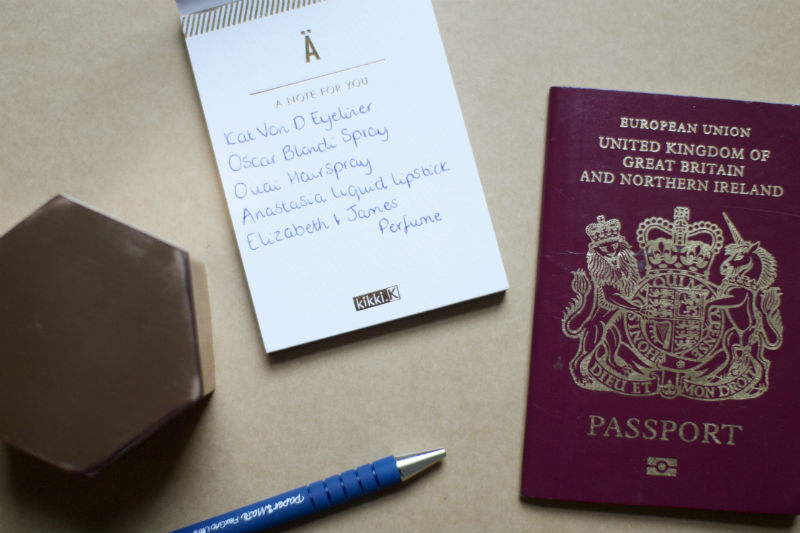 Ä
A NOTE FOR YOU
Kat Von D Eyeliner
Oscar Blandi Spray
Ouai Hairspray
Anastasia liquid lipstick
Elizabeth & James
Perfume
kikki.K
EUROPEAN UNION
UNITED KINGDOM OF
GREAT BRITAIN
AND NORTHERN IRELAND
DIEU ET MON DROIT
PASSPORT
PaperMate FlexGrip Ultra